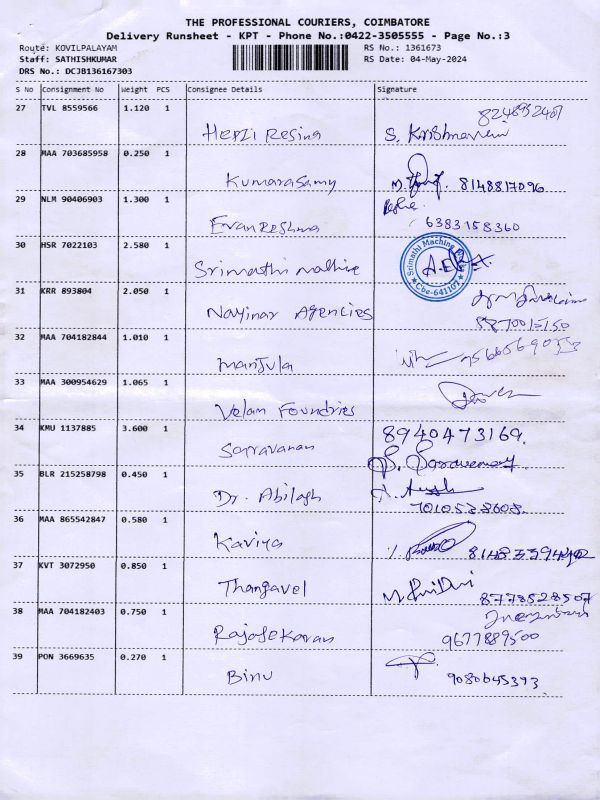 THE PROFESSIONAL COURIERS, COIMBATORE
Delivery Runsheet - KPT - Phone No.:0422-3505555 - Page No.:3
Route: KOVILPALAYAM RS No.: 1361673
Staff: SATHISHKUMAR RS Date: 04-May-2024
DRS No.: DCJB136167303
S No Consignment No Weight PCS Consignee Details Signature
27 TVL 8559566 1.120 1
Herzi Resina S. Krishnaveni
28 MAA 703685958 0.250 1
Kumarasamy 8148817096
29 NLM 90406903 1.300 1
Evan Reshma 6383158360
30 HSR 7022103 2.580 1
Srimathi Srimathi Machine Cbe-641107
31 KRR 893804 2.050 1
Nayinar Agencies
32 MAA 704182844 1.010 1
manjula
33 MAA 300954629 1.065 1
Velan Foundries
34 KMU 1137885 3.600 1 8940473169.
Saravanan S. Saravanan
35 BLR 215258798 0.450 1
Dr. Abilash 7010538608.
36 MAA 865542847 0.580 1
Kaviya
37 KVT 3072950 0.850 1
Thangavel 8778528507
38 MAA 704182403 0.750 1
Rajasekaran 9677889500
39 PON 3669635 0.270 1
Binu 9080645393